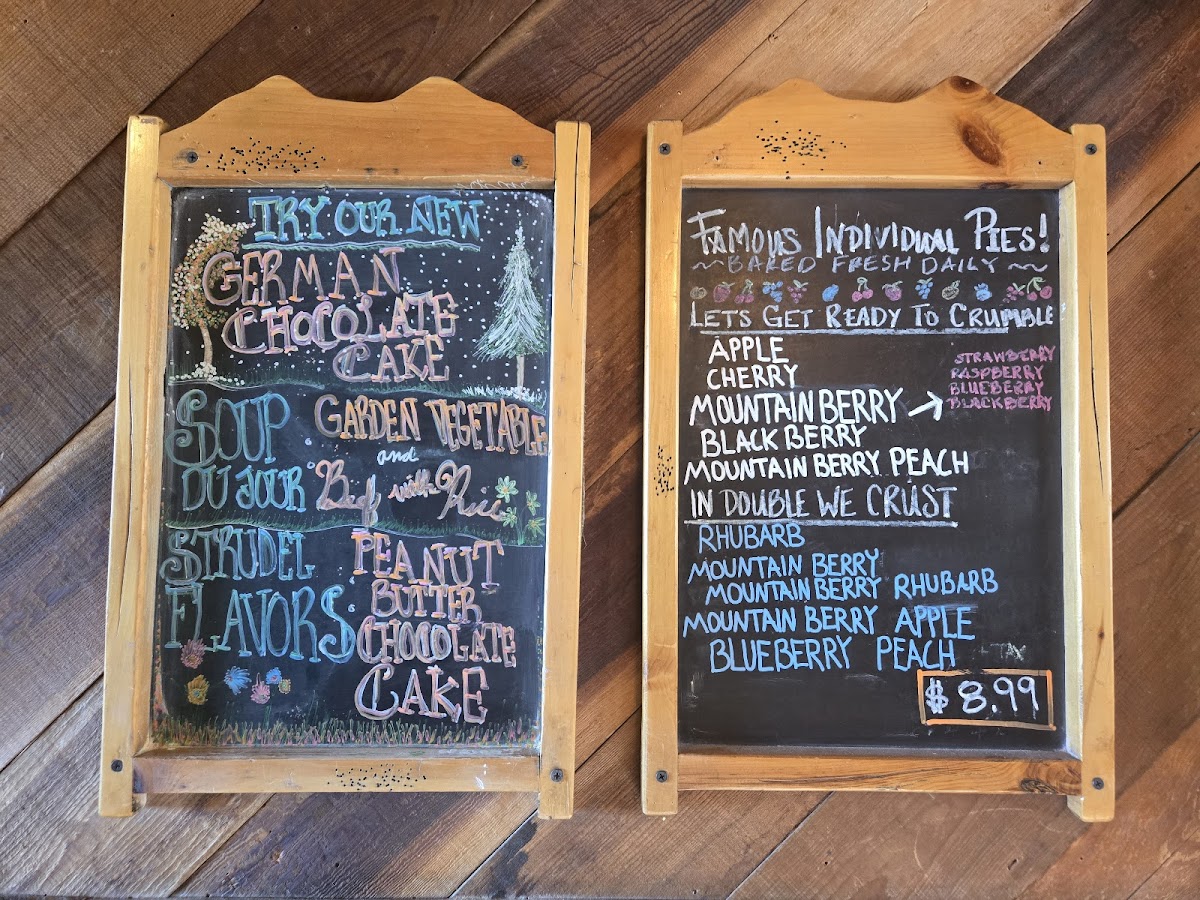 TRY OUR NEW
GERMAN
CHOCOLATE
CAKE
SOUP
DU JOUR
GARDEN VEGETABLE
and
Beef with Rice
STRUDEL
FLAVORS
PEANUT
BUTTER
CHOCOLATE
CAKE
FAMOUS INDIVIDUAL PIES!
~BAKED FRESH DAILY~
LETS GET READY TO CRUMBLE
APPLE
CHERRY
MOUNTAIN BERRY →
STRAWBERRY
RASPBERRY
BLUEBERRY
BLACKBERRY
BLACK BERRY
MOUNTAIN BERRY PEACH
IN DOUBLE WE CRUST
RHUBARB
MOUNTAIN BERRY
MOUNTAIN BERRY RHUBARB
MOUNTAIN BERRY APPLE
BLUEBERRY PEACH
TAX
$8.99